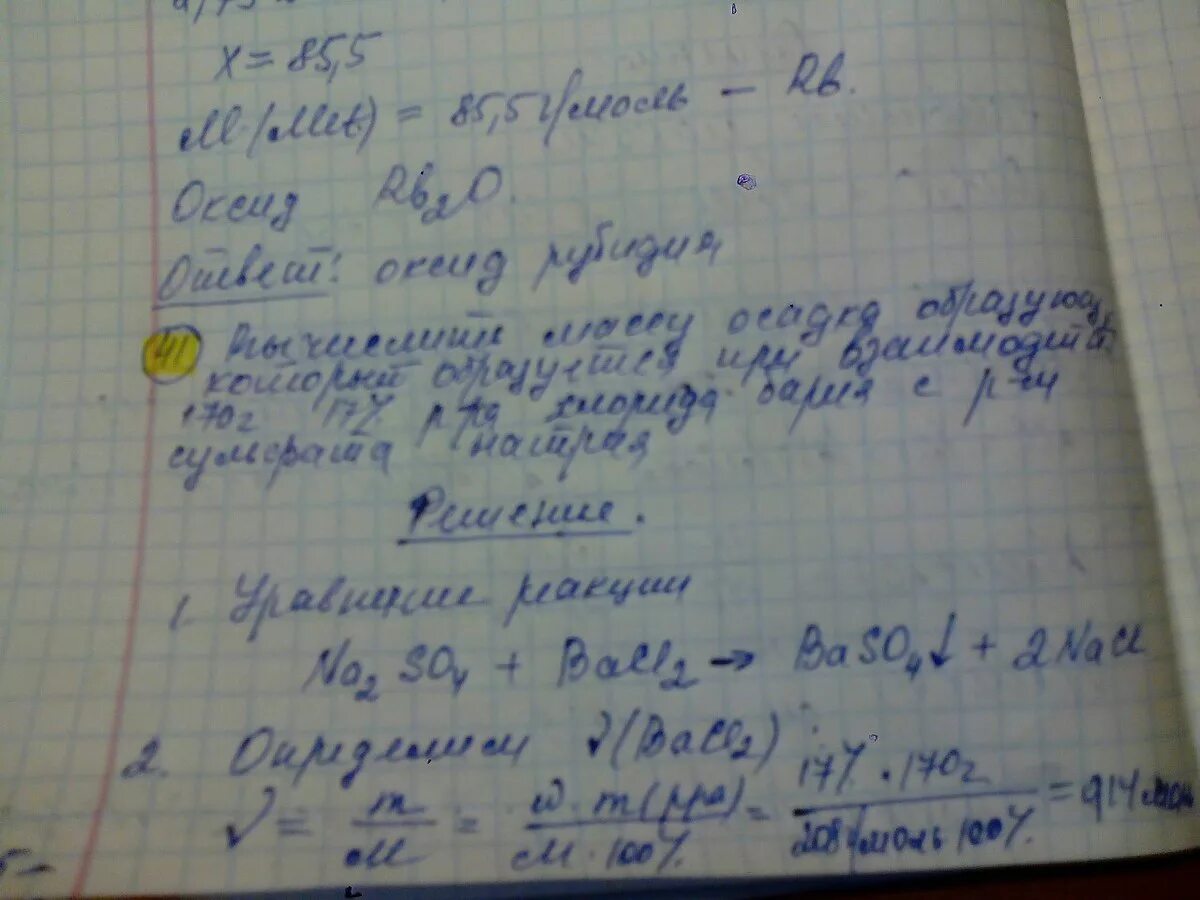 x = 85,5
M(Me) = 85,5 г/моль – Rb.
Оксид Rb₂O.
Ответ: оксид рубидия
41 Вычислить массу осадка образующ,
который образуется при взаимодейст.
170г 17% р-ра хлорида бария с р-ом
сульфата натрия
Решение.
1. Уравнение реакции
Na₂SO₄ + BaCl₂ → BaSO₄↓ + 2NaCl
2. Определяем ν(BaCl₂):
ν = m/M = ω · m(р-ра)/M · 100% = 17% · 170г/208г/моль 100% = 0,14 моль